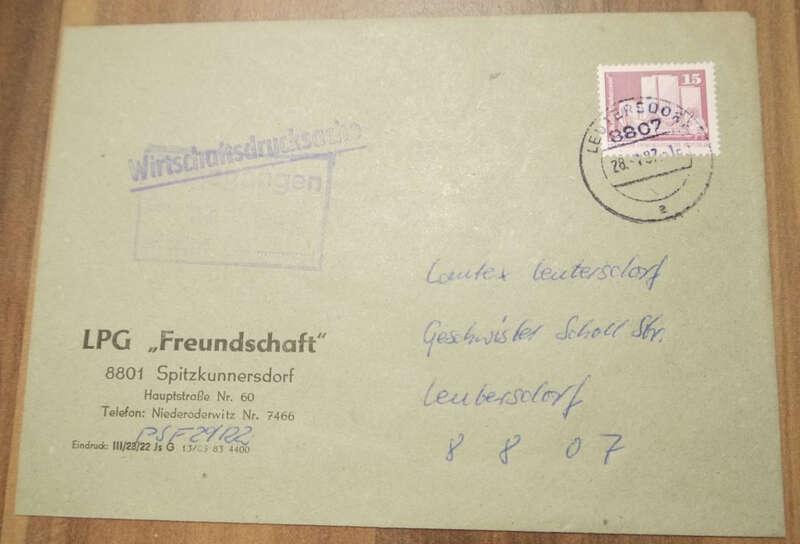 15
LEUTERSDORF
8807
28.-7.87.-1
a
Wirtschaftsdrucksache
LPG „Freundschaft“
8801 Spitzkunnersdorf
Hauptstraße Nr. 60
Telefon: Niederoderwitz Nr. 7466
PSF 29122
Eindruck: III/28/22 Js G 13/03 83 4400
Lautex Leutersdorf
Geschwister Scholl Str.
Leutersdorf
8 8 0 7